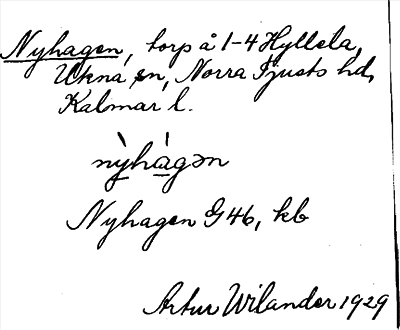 Nyhagen, torp å 1-4 Hyllela,
Ukna sn, Norra Tjusts hd,
Kalmar l.
nỳhàgən
Nyhagen G46, kb
Artur Wilander 1929